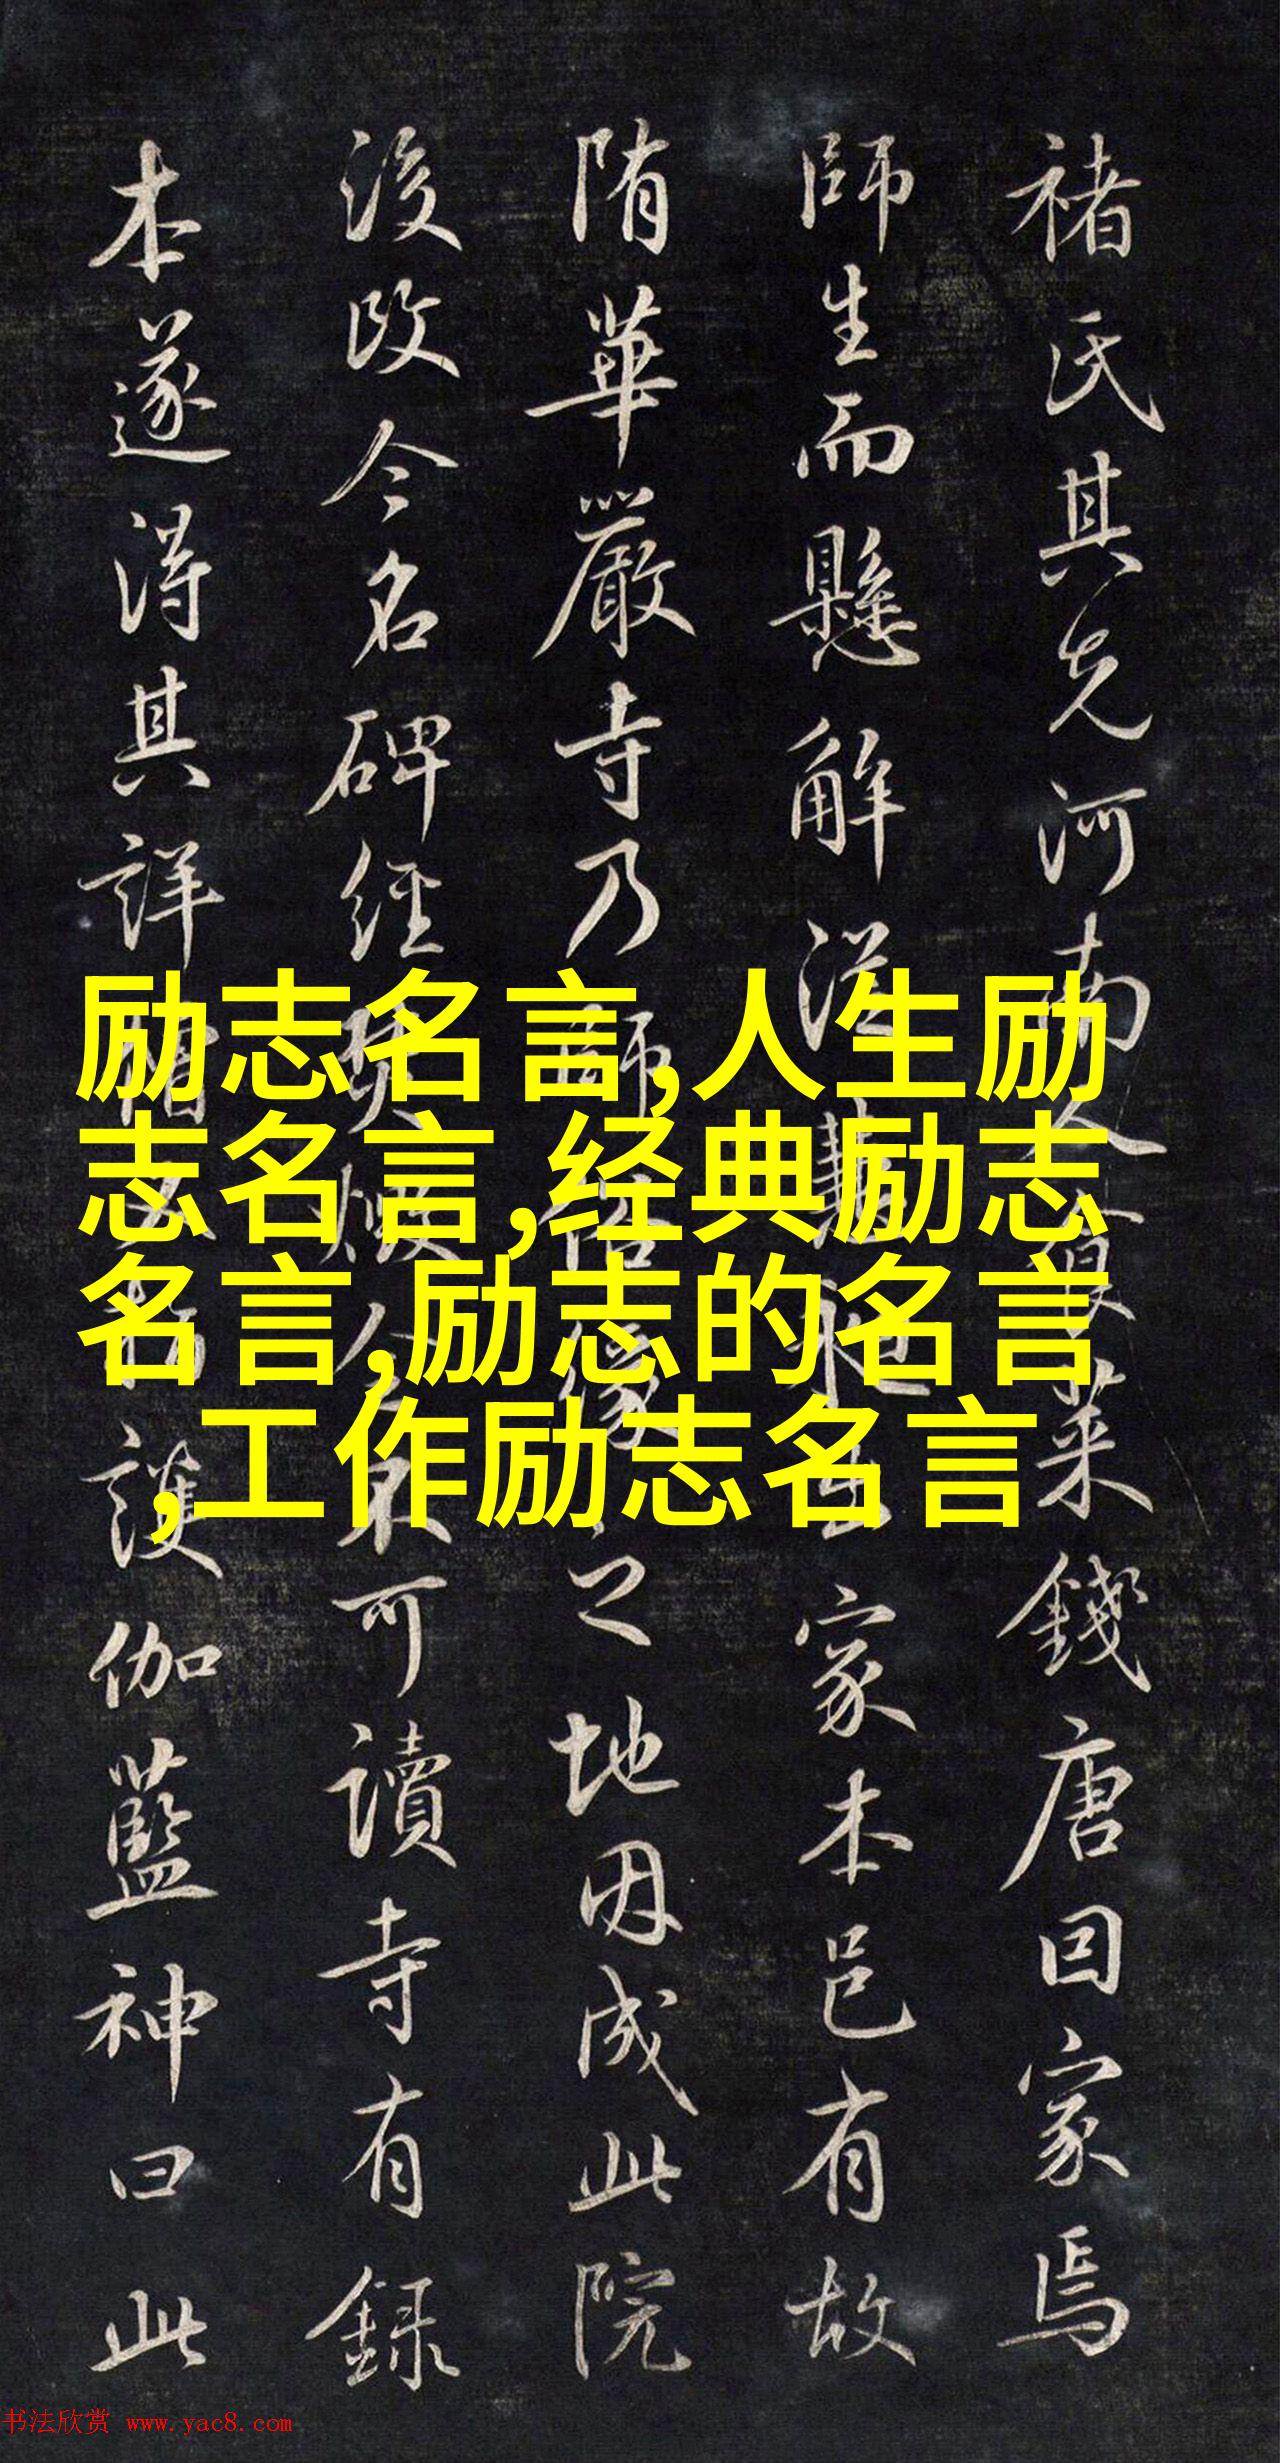 褚氏其先河南人冒菜錢唐因家焉
師生而懸解從出家本邑有故
隋華嚴寺乃師之地因成此院
後改今名碑經焚燬不可讀寺有錄
本遂得其詳護伽藍神曰此
励志名言,人生励
志名言,经典励志
名言,励志的名言
,工作励志名言
书法欣赏 www.yac8.com